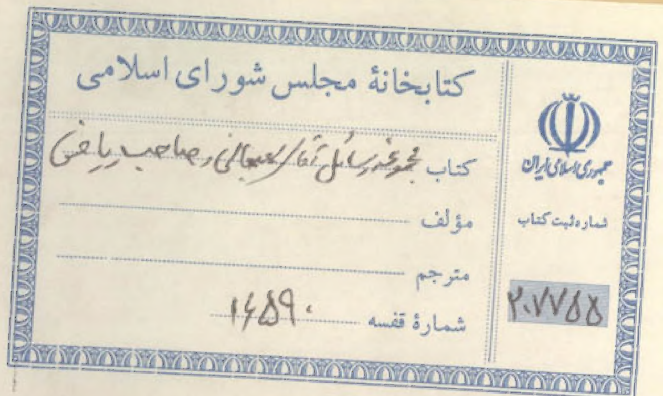 کتابخانهٔ مجلس شورای اسلامی
کتاب مجموعه رسائل آقای بهبهانی و صاحب ریاض
مؤلف
مترجم
شمارهٔ قفسه ۱۶۵۹۰
جمهوری اسلامی ایران
شماره ثبت کتاب
۲۰۷۷۵۵